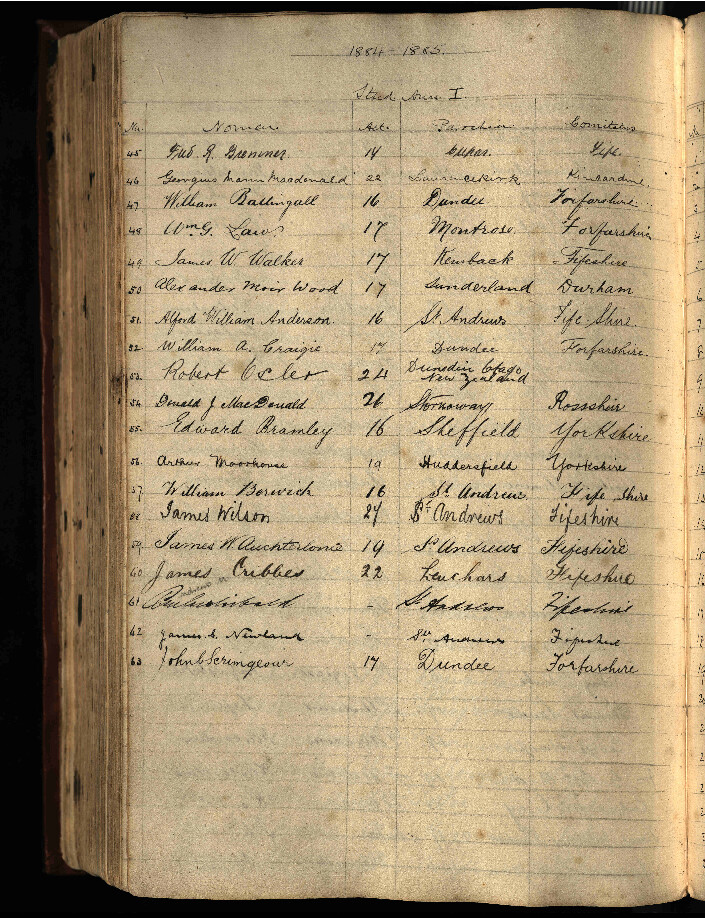 1884-1885.
Stud. Ann. I.
No. Nomen Aet. Parochia Comitatus
45 Fred. R. Bremner. 19 Cupar. Fife.
46 Georgius Mann Macdonald 22 Laurencekirk Kincardine.
47 William Ballingall 16 Dundee Forfarshire.
48 Wm. G. Law. 17 Montrose. Forfarshire
49 James W. Walker 17 Kemback Fifeshire
50 Alexander Moir Wood 17 Sunderland Durham
51. Alford William Anderson. 16 St. Andrews Fife Shire.
52. William A. Craigie 17 Dundee Forfarshire.
53. Robert Osler 24 Dunedin Otago, New Zealand
54. Donald J. MacDonald 26 Stornoway Rossshire
55. Edward Bramley 16 Sheffield Yorkshire
56. Arthur Moorhouse 19 Huddersfield Yorkshire
57. William Berwick 16 St. Andrew Fife Shire
58 James Wilson 24 St. Andrews Fifeshire
59. James W. Auchterlonie 19 St Andrews Fifeshire
60 James Cribbes 22 Leuchars Fifeshire
61 Archibald - St Andrews Fifeshire
62 James S. Newland - St. Andrews Fifeshire
63 John C Scrimgeour 17 Dundee Forfarshire